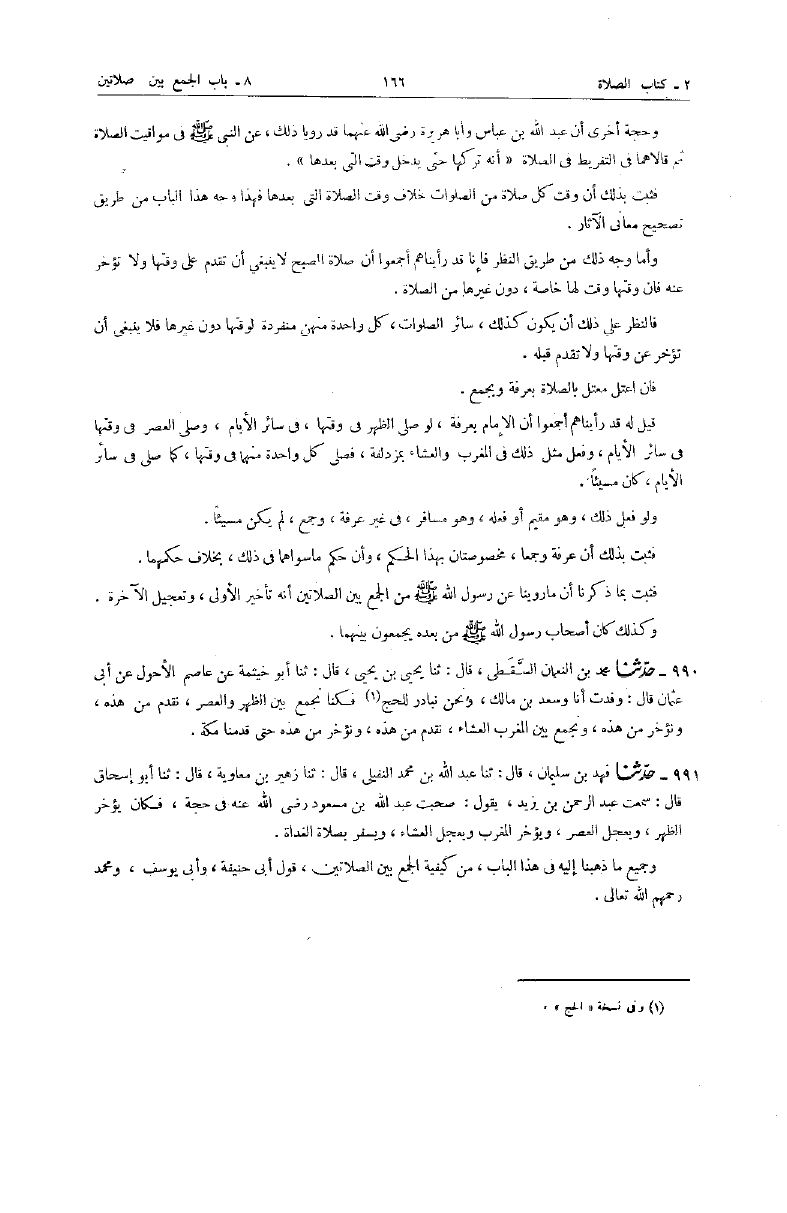 ٢ ـ كتاب الصلاة ١٦٦ ٨ ـ باب الجمع بين صلاتين
وحجة أخرى أن عبد الله بن عباس وأبا هريرة رضى الله عنهما قد رويا ذلك ، عن النبى ﷺ فى مواقيت الصلاة
ثم قالاها فى التفريط فى الصلاة « أنه تركها حتى يدخل وقت التى بعدها » .
فثبت بذلك أن وقت كل صلاة من الصلوات خلاف وقت الصلاة التى بعدها فهذا وجه هذا الباب من طريق
تصحيح معانى الآثار .
وأما وجه ذلك من طريق النظر فإنا قد رأيناهم أجمعوا أن صلاة الصبح لا ينبغي أن تقدم على وقتها ولا تؤخر
عنه فان وقتها وقت لها خاصة ، دون غيرها من الصلاة .
فالنظر على ذلك أن يكون كذلك ، سائر الصلوات ، كل واحدة منهن منفردة لوقتها دون غيرها فلا ينبغى أن
تؤخر عن وقتها ولا تقدم قبله .
فان اعتل معتل بالصلاة بعرفة وبجمع .
قيل له قد رأيناهم أجمعوا أن الإمام بعرفة ، لو صلى الظهر فى وقتها ، فى سائر الأيام ، وصلى العصر فى وقتها
فى سائر الأيام ، وفعل مثل ذلك فى المغرب والعشاء بمزدلفة ، فصلى كل واحدة منهما فى وقتها ، كما صلى فى سائر
الأيام ، كان مسيئاً .
ولو فعل ذلك ، وهو مقيم أو فعله ، وهو مسافر ، فى غير عرفة ، وجمع ، لم يكن مسيئاً .
فثبت بذلك أن عرفة وجمعا ، مخصوصتان بهذا الحكم ، وأن حكم ماسواهما فى ذلك ، بخلاف حكمهما .
فثبت بما ذكرنا أن ماروينا عن رسول الله ﷺ من الجمع بين الصلاتين أنه تأخير الأولى ، وتعجيل الآخرة .
وكذلك كان أصحاب رسول الله ﷺ من بعده يجمعون بينهما .
٩٩٠ ـ حدّثنا محمد بن النعمان السَّقَطى ، قال : ثنا يحيى بن يحيى ، قال : ثنا أبو خيثمة عن عاصم الأحول عن أبى
عثمان قال : وفدت أنا وسعد بن مالك ، ونحن نبادر للحج(١) فكنا نجمع بين الظهر والعصر ، نقدم من هذه ،
ونؤخر من هذه ، ونجمع بين المغرب العشاء ، نقدم من هذه ، ونؤخر من هذه حتى قدمنا مكة .
٩٩١ ـ حدّثنا فهد بن سليمان ، قال : ثنا عبد الله بن محمد النفيلى ، قال : ثنا زهير بن معاوية ، قال : ثنا أبو إسحاق
قال : سمعت عبد الرحمن بن يزيد ، يقول : صحبت عبد الله بن مسعود رضى الله عنه فى حجة ، فكان يؤخر
الظهر ، ويعجل العصر ، ويؤخر المغرب ويعجل العشاء ، ويسفر بصلاة الغداة .
وجميع ما ذهبنا إليه فى هذا الباب ، من كيفية الجمع بين الصلاتين ، قول أبى حنيفة ، وأبى يوسف ، ومحمد
رحمهم الله تعالى .
(١) وفى نسخة « الحج » .